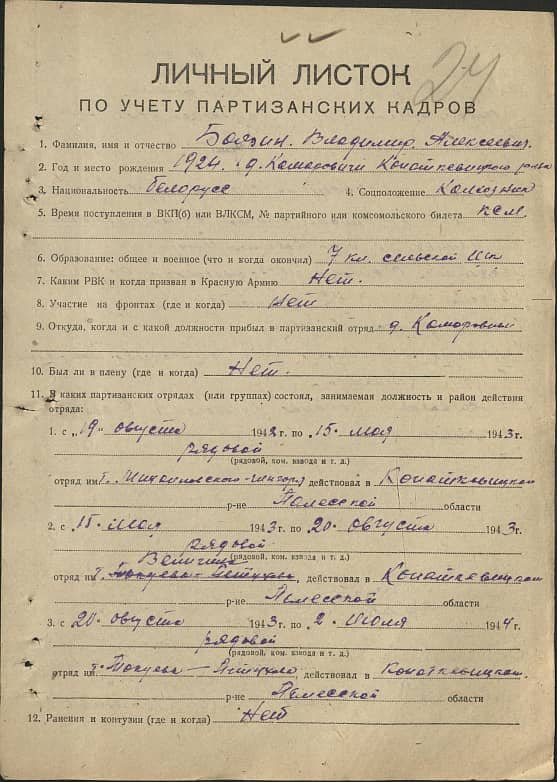 24
ЛИЧНЫЙ ЛИСТОК
ПО УЧЕТУ ПАРТИЗАНСКИХ КАДРОВ
1. Фамилия, имя и отчество Владимир Алексеевич
2. Год и место рождения 1924 д. Комаровичи Копаткевицкого
3. Национальность белорусс 4. Соцположение Колхозник
5. Время поступления в ВКП(б) или ВЛКСМ, № партийного или комсомольского билета
6. Образование: общее и военное (что и когда окончил) 7 кл. сельской
7. Каким РВК и когда призван в Красную Армию Нет.
8. Участие на фронтах (где и когда) Нет
9. Откуда, когда и с какой должности прибыл в партизанский отряд д. Комаровичи
10. Был ли в плену (где и когда) Нет.
11. В каких партизанских отрядах (или группах) состоял, занимаемая должность и район действия
отряда:
1. с „19" августа 1942 г. по 15. мая 1943 г.
рядовой
(рядовой, ком. взвода и т. д.)
отряд им т. действовал в Копаткевицком
р-не Полесской области
2. с 15. мая 1943 г. по 20. августа 1943 г.
рядовой
(рядовой, ком. взвода и т. д.)
отряд им т. действовал в Копаткевицком
р-не Полесской области
3. с 20. августа 1943 г. по 2 июля 1944 г.
рядовой
(рядовой, ком. взвода и т. д.)
отряд им т. действовал в Копаткевицком
р-не Полесской области
12. Ранения и контузии (где и когда) Нет